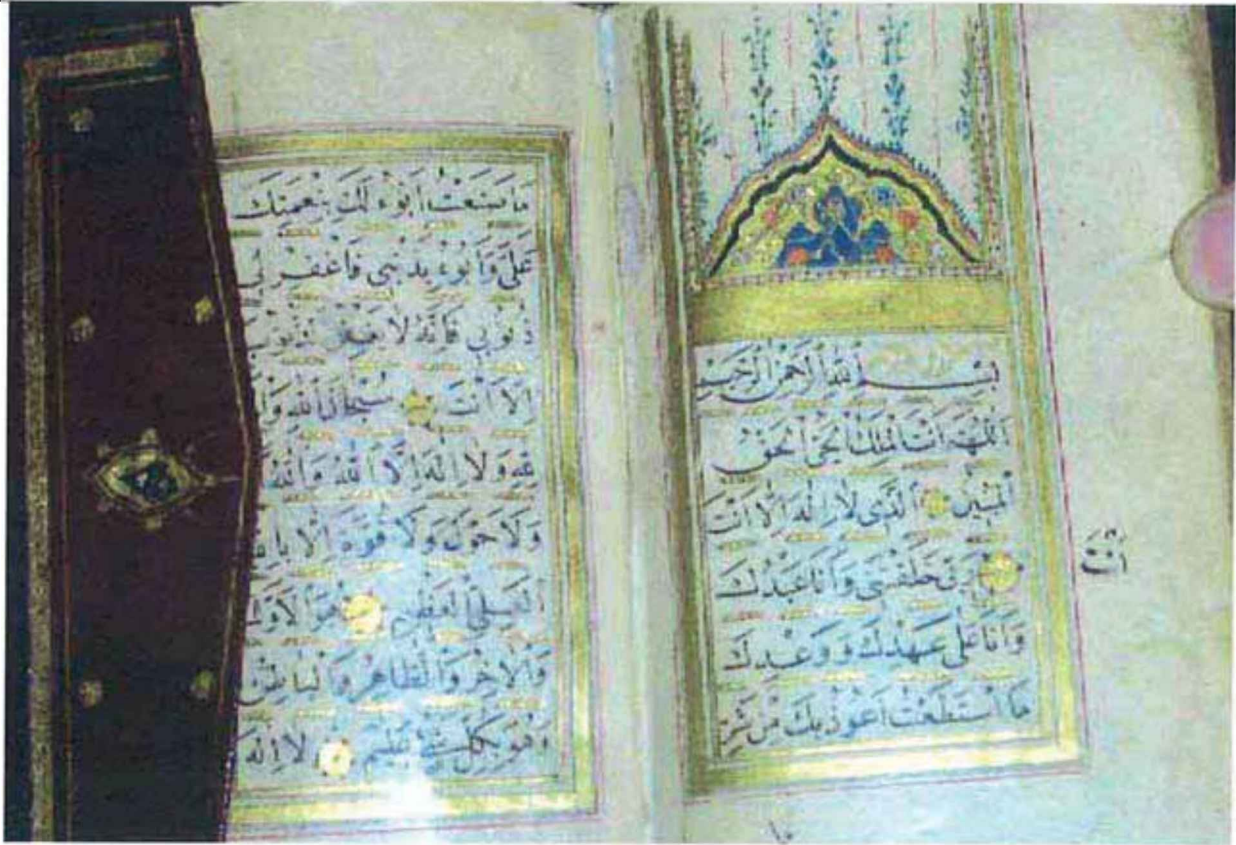 بِسْمِ اللهِ الرَّحْمٰنِ الرَّحِيمِ
اَللّٰهُمَّ اَنْتَ الْمَلِكُ الْحَيُّ الْحَقُّ
الْمُبِينُ الَّذِى لَا اِلٰهَ اِلَّا اَنْتَ
رَبِّى خَلَقْتَنِى وَاَنَا عَبْدُكَ
وَاَنَا عَلٰى عَهْدِكَ وَوَعْدِكَ
مَا اسْتَطَعْتُ اَعُوذُ بِكَ مِنْ شَرِّ
اَنْتَ
مَا صَنَعْتُ اَبُوءُ لَكَ بِنِعْمَتِكَ
عَلَىَّ وَاَبُوءُ بِذَنْبِى فَاغْفِرْ لِى
ذُنُوبِى فَاِنَّهُ لَا يَغْفِرُ الذُّنُوبَ
اِلَّا اَنْتَ سُبْحَانَ اللهِ
لِلّٰهِ وَلَا اِلٰهَ اِلَّا اللهُ وَاللهُ
وَلَا حَوْلَ وَلَا قُوَّةَ اِلَّا بِاللهِ
الْعَلِىِّ الْعَظِيمِ هُوَ الْاَوَّلُ
وَالْاٰخِرُ وَالظَّاهِرُ وَالْبَاطِنُ
وَهُوَ بِكُلِّ شَىْءٍ عَلِيمٌ لَا اِلٰهَ